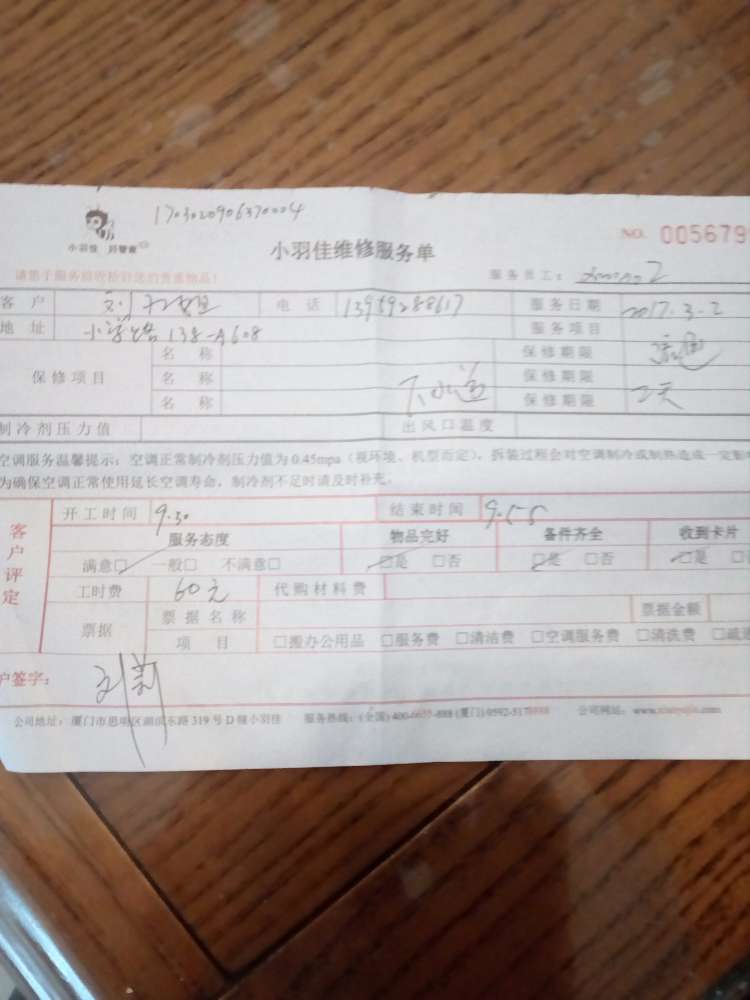 1703020906370004
小羽佳 好管家
NO. 005679
小羽佳维修服务单
服务员工:
客户 刘 电话 13959288617 服务日期 2017.3.2
地址 小学路138-A608 服务项目
保修项目 名称 保修期限
名称 下水道 保修期限
名称 保修期限 2天
制冷剂压力值 出风口温度
空调服务温馨提示:空调正常制冷剂压力值为0.45mpa(视环境、机型而定),拆装过程会对空调制冷或制热造成一定影
为确保空调正常使用延长空调寿命,制冷剂不足时请及时补充。
客户评定
开工时间 9.30 结束时间 9.55
服务态度 物品完好 备件齐全 收到卡片
满意□ 一般□ 不满意□ □是 □否 □是 □否 □是
工时费 60元 代购材料费
票据 票据名称 票据金额
项目 □搬办公用品 □服务费 □清洁费 □空调服务费 □清洗费
户签字: 刘
公司地址:厦门市思明区湖滨东路319号D幢小羽佳 服务热线:(全国) (厦门) 公司网址: